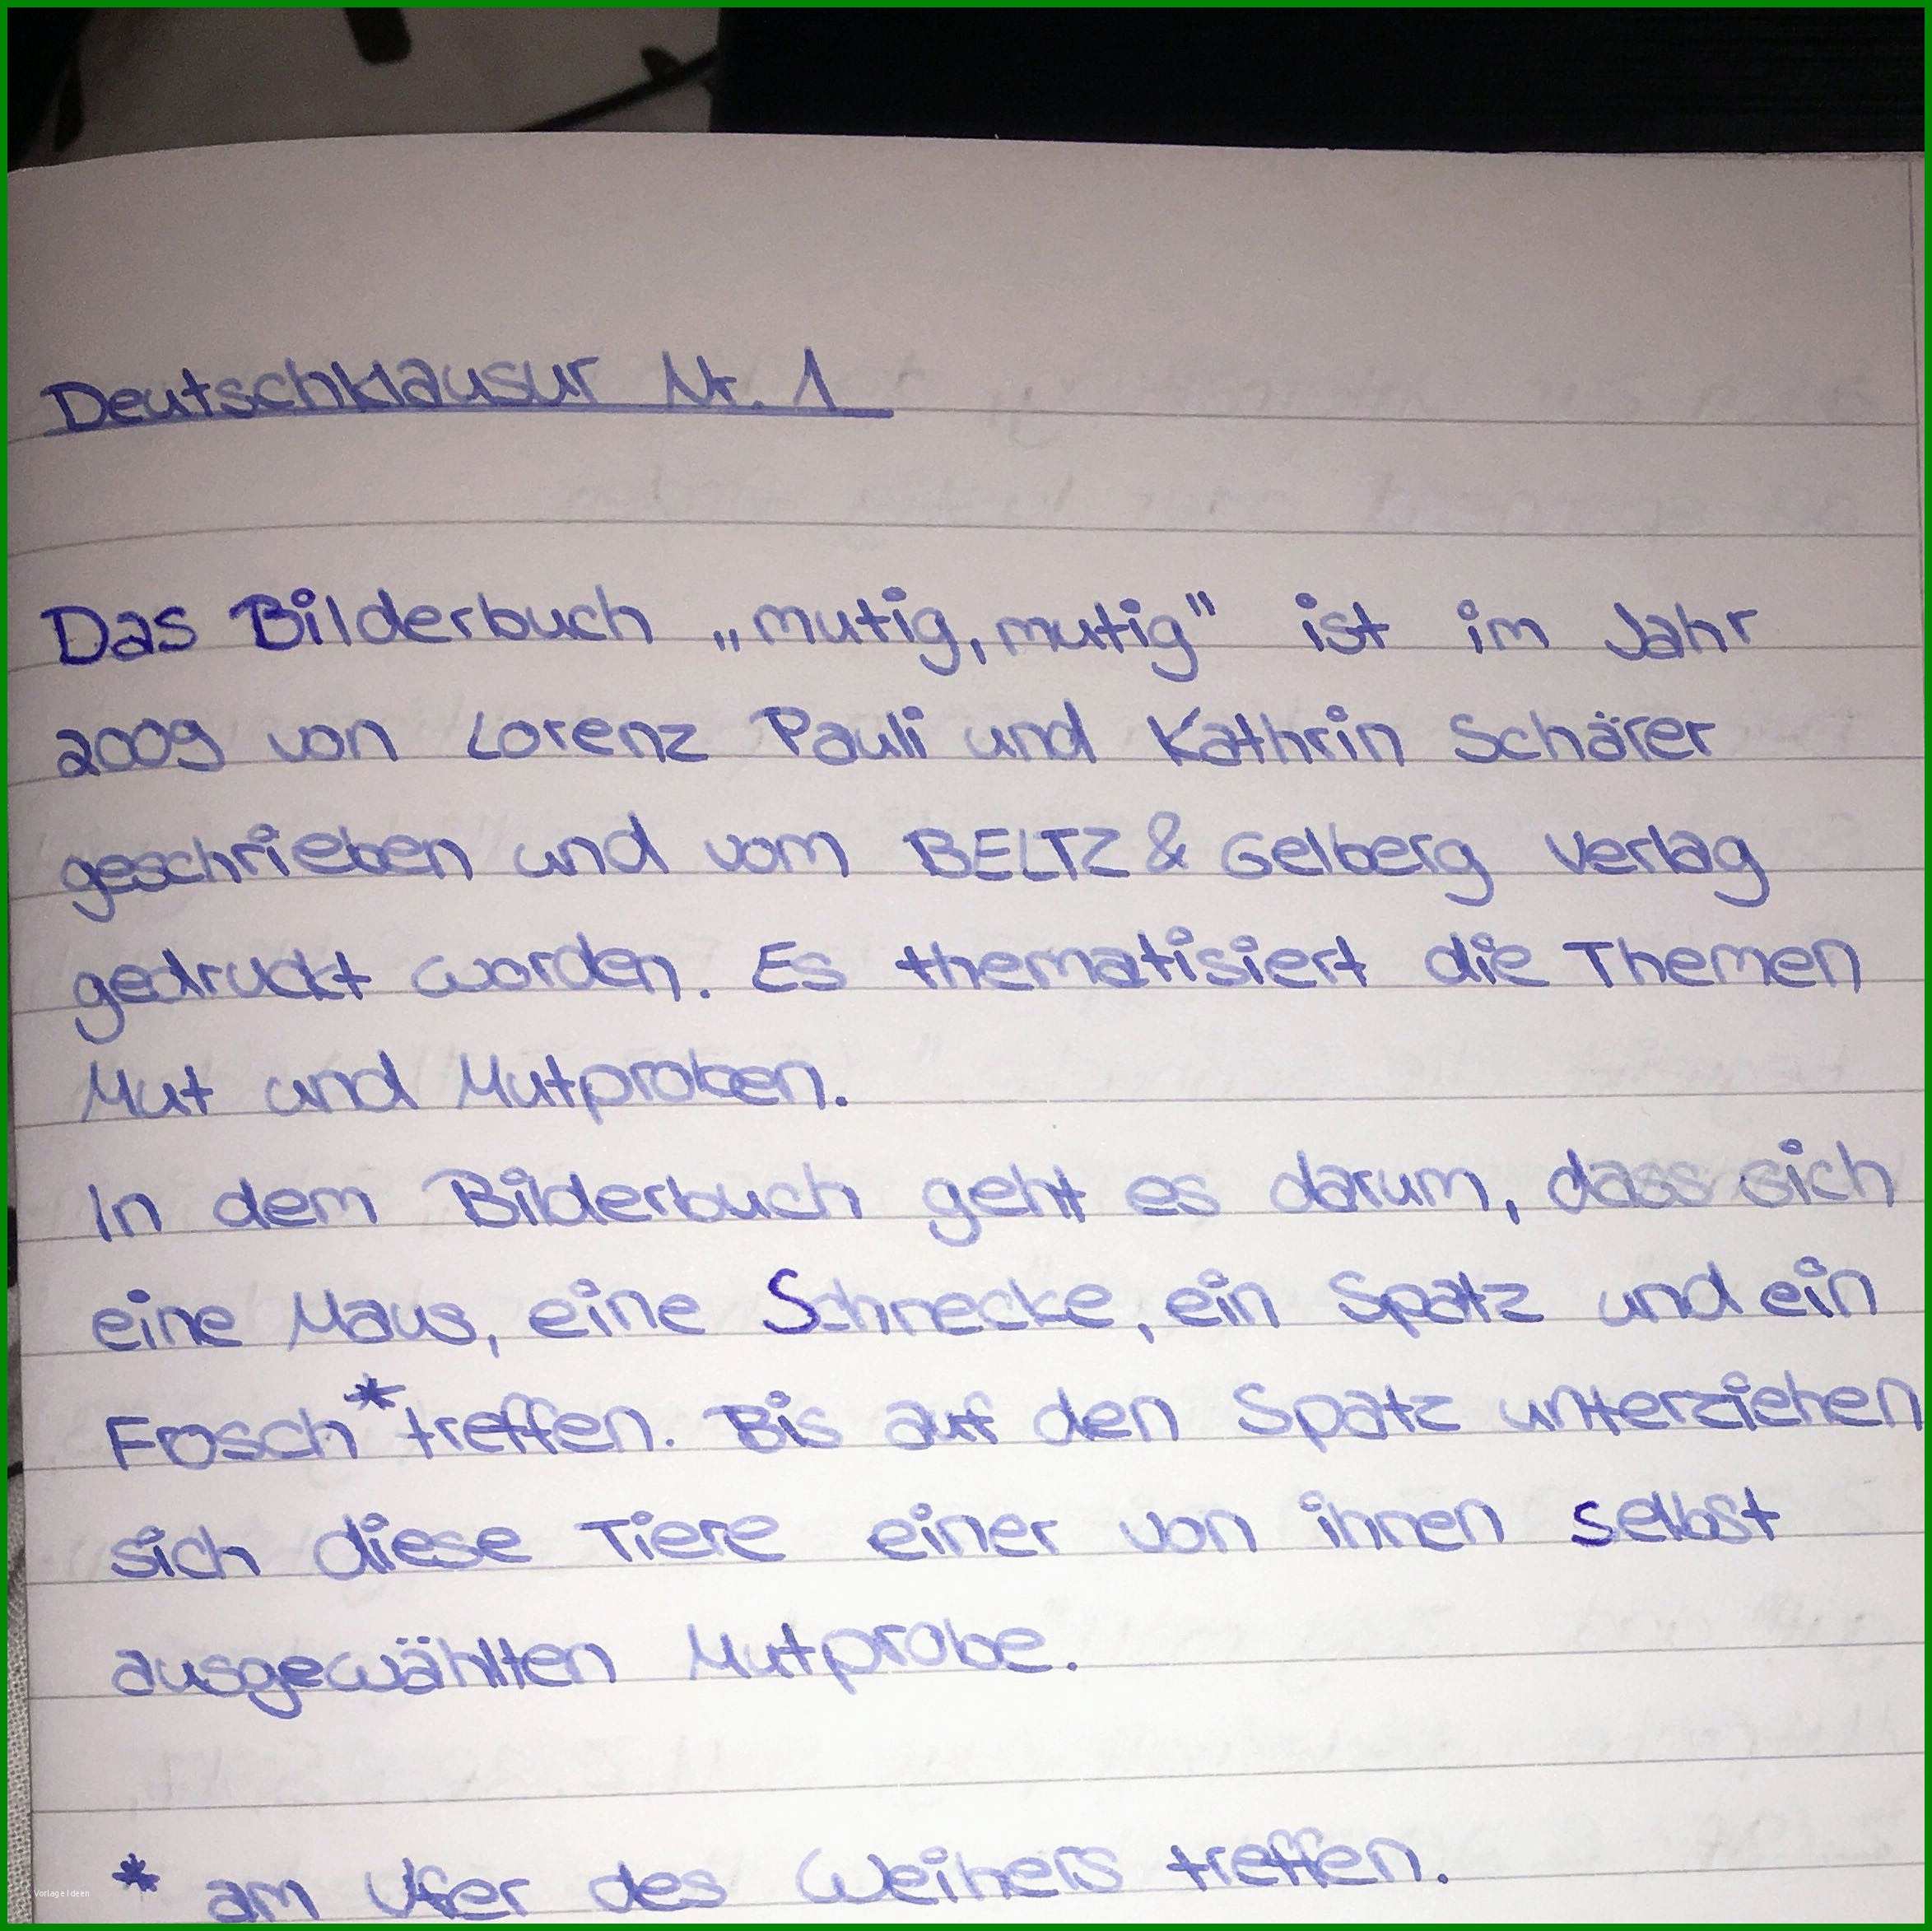 Deutschklausur Nr. 1
Das Bilderbuch „mutig, mutig" ist im Jahr
2009 von Lorenz Pauli und Kathrin Schärer
geschrieben und vom BELTZ & Gelberg Verlag
gedruckt worden. Es thematisiert die Themen
Mut und Mutproben.
In dem Bilderbuch geht es darum, dass sich
eine Maus, eine Schnecke, ein Spatz und ein
Frosch * treffen. Bis auf den Spatz unterziehen
sich diese Tiere einer von ihnen selbst
ausgewählten Mutprobe.
* am Ufer des Weihers treffen.
Vorlage Ideen